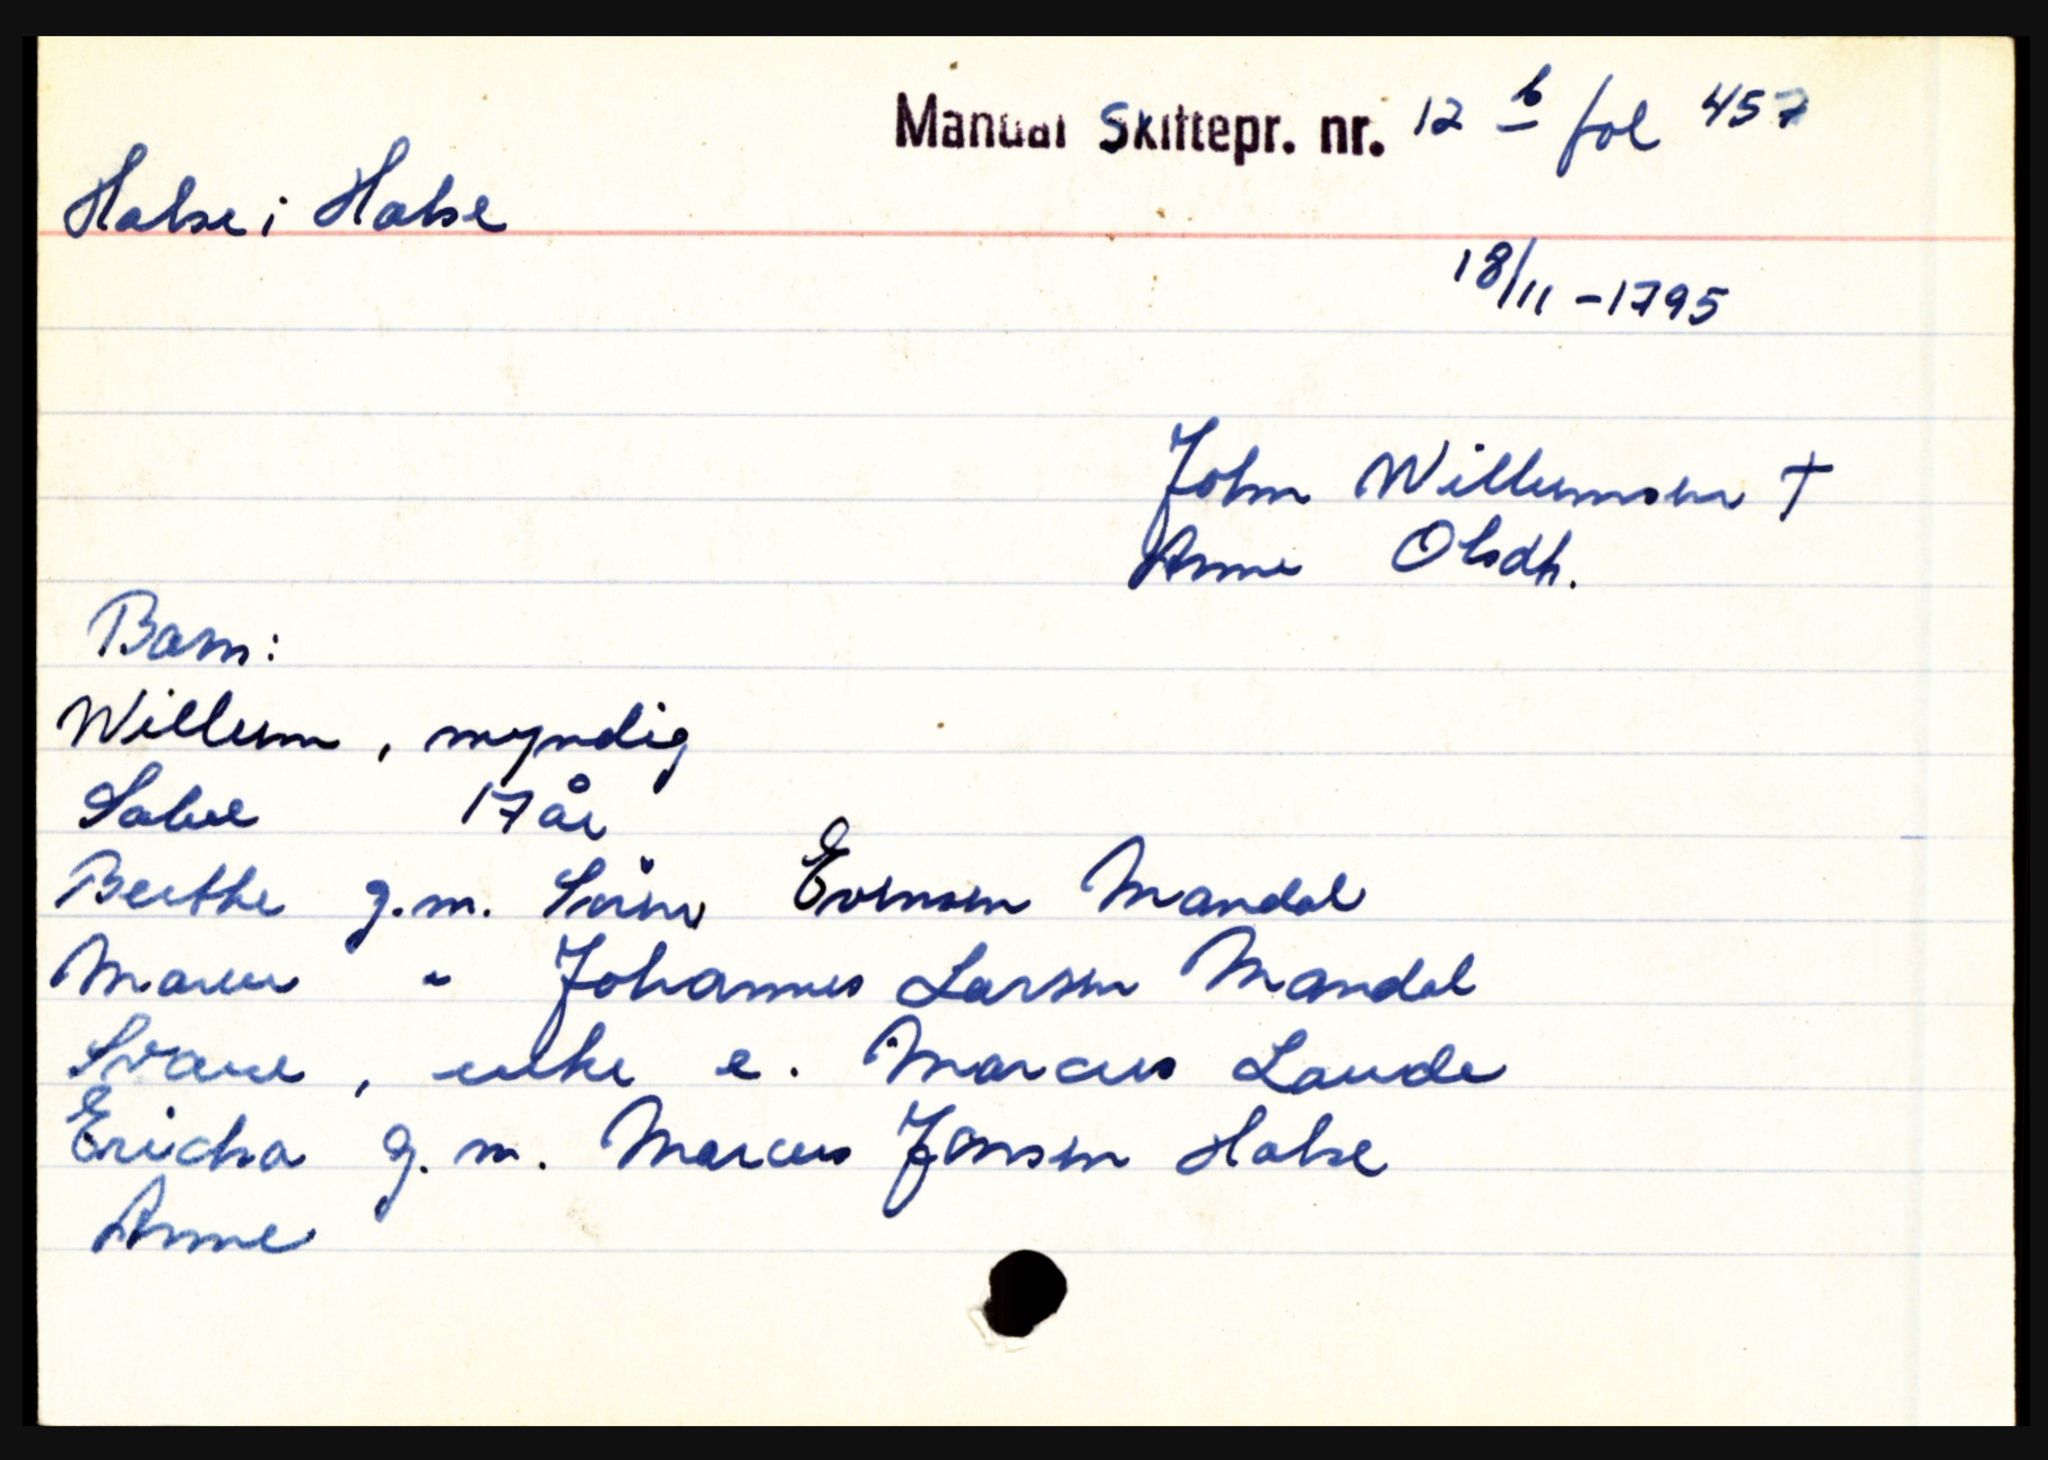 Mandal Skiftepr. nr. 12 b fol 457
Halse i Halse
18/11 - 1795
John Willumsen †
Anne Olsdh.
Barn:
Willum, myndig
Salve 17 år
Berthe g.m. Sören Evensen Mandal
Maren " Johannes Larsen Mandal
Svane, enke e. Marcus Lande
Ericka g.m. Marcus Jonsen Halse
Anne